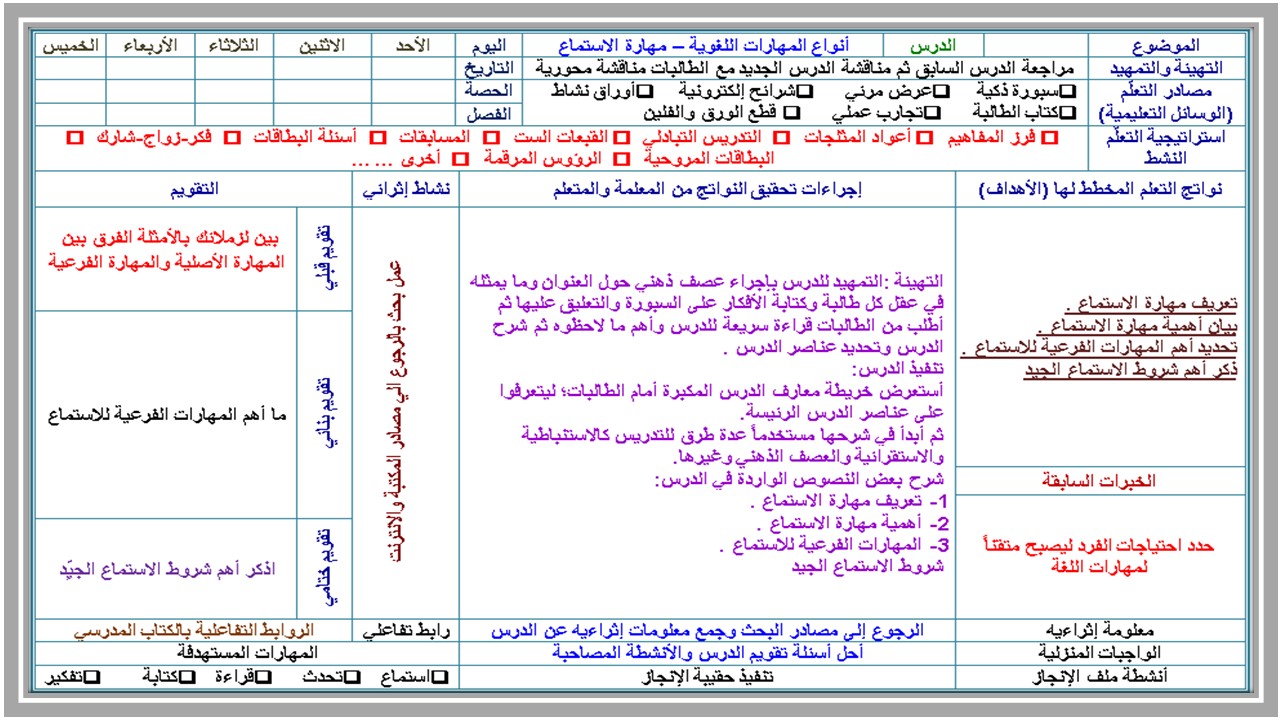 الموضوع
الدرس
أنواع المهارات اللغوية – مهارة الاستماع
اليوم
الأحد
الاثنين
الثلاثاء
الأربعاء
الخميس
التهيئة والتمهيد
مراجعة الدرس السابق ثم مناقشة الدرس الجديد مع الطالبات مناقشة محورية
التاريخ
مصادر التعلّم
(الوسائل التعليمية)
❑سبورة ذكية ❑عرض مرئي ❑شرائح إلكترونية ❑أوراق نشاط
❑كتاب الطالبة ❑تجارب عملي ❑ قطع الورق والفلين
الحصة
الفصل
استراتيجية التعلّم
النشط
❑ فرز المفاهيم ❑ أعواد المثلجات ❑ التدريس التبادلي ❑ القبعات الست ❑ المسابقات ❑ أسئلة البطاقات ❑ فكر-زواج-شارك ❑
البطاقات المروحية ❑ الرؤوس المرقمة ❑ أخرى ... ...
نواتج التعلم المخطط لها (الأهداف)
إجراءات تحقيق النواتج من المعلمة والمتعلم
نشاط إثرائي
التقويم
تعريف مهارة الاستماع .
بيان أهمية مهارة الاستماع .
تحديد أهم المهارات الفرعية للاستماع .
ذكر أهم شروط الاستماع الجيد
الخبرات السابقة
حدد احتياجات الفرد ليصبح متقناً
لمهارات اللغة
التهيئة :التمهيد للدرس بإجراء عصف ذهني حول العنوان وما يمثله
في عقل كل طالبة وكتابة الأفكار على السبورة والتعليق عليها ثم
أطلب من الطالبات قراءة سريعة للدرس وأهم ما لاحظوه ثم شرح
الدرس وتحديد عناصر الدرس .
تنفيذ الدرس:
أستعرض خريطة معارف الدرس المكبرة أمام الطالبات؛ ليتعرفوا
على عناصر الدرس الرئيسة.
ثم أبدأ في شرحها مستخدماً عدة طرق للتدريس كالاستنباطية
والاستقرائية والعصف الذهني وغيرها.
شرح بعض النصوص الواردة في الدرس:
1- تعريف مهارة الاستماع .
2- أهمية مهارة الاستماع .
3- المهارات الفرعية للاستماع .
شروط الاستماع الجيد
عمل بحث بالرجوع الي مصادر المكتبة والانترنت
تقويم قبلي
بين لزملائك بالأمثلة الفرق بين
المهارة الأصلية والمهارة الفرعية
تقويم بنائي
ما أهم المهارات الفرعية للاستماع
تقويم ختامي
اذكر أهم شروط الاستماع الجيّد
معلومة إثرائيه
الرجوع إلى مصادر البحث وجمع معلومات إثراءيه عن الدرس
رابط تفاعلي
الروابط التفاعلية بالكتاب المدرسي
الواجبات المنزلية
أحل أسئلة تقويم الدرس والأنشطة المصاحبة
المهارات المستهدفة
أنشطة ملف الإنجاز
تنفيذ حقيبة الإنجاز
❑استماع ❑تحدث ❑قراءة ❑كتابة ❑تفكير